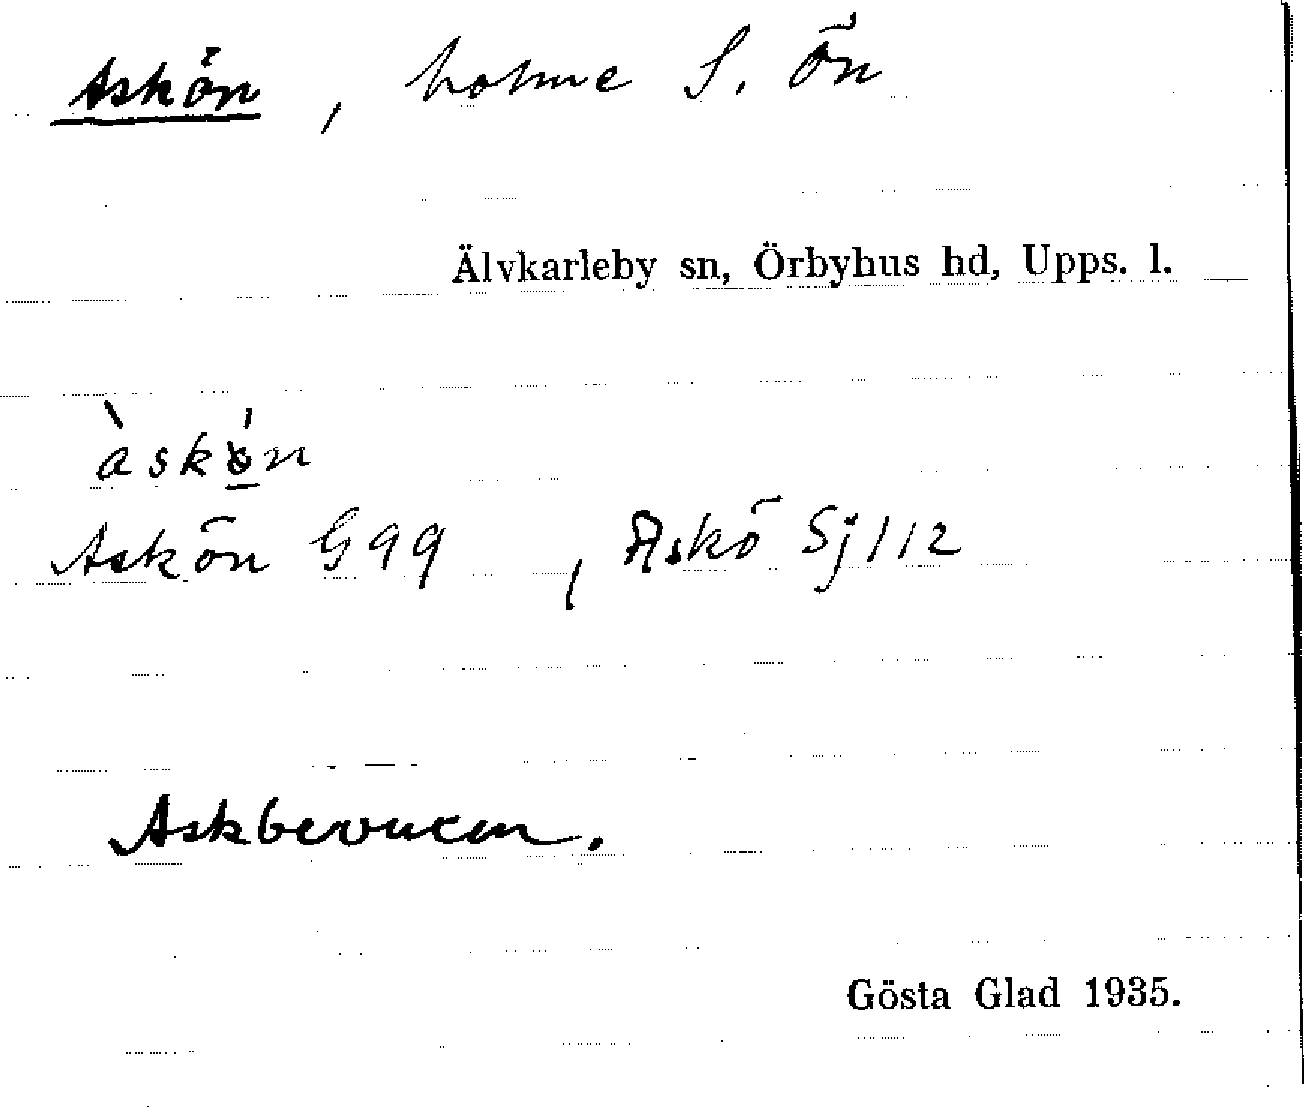 Askön, holme S. Ön
Älvkarleby sn, Örbyhus hd, Upps. l.
àskö́n
Askön G99, Askö Sj112
Askbevuxen.
Gösta Glad 1935.